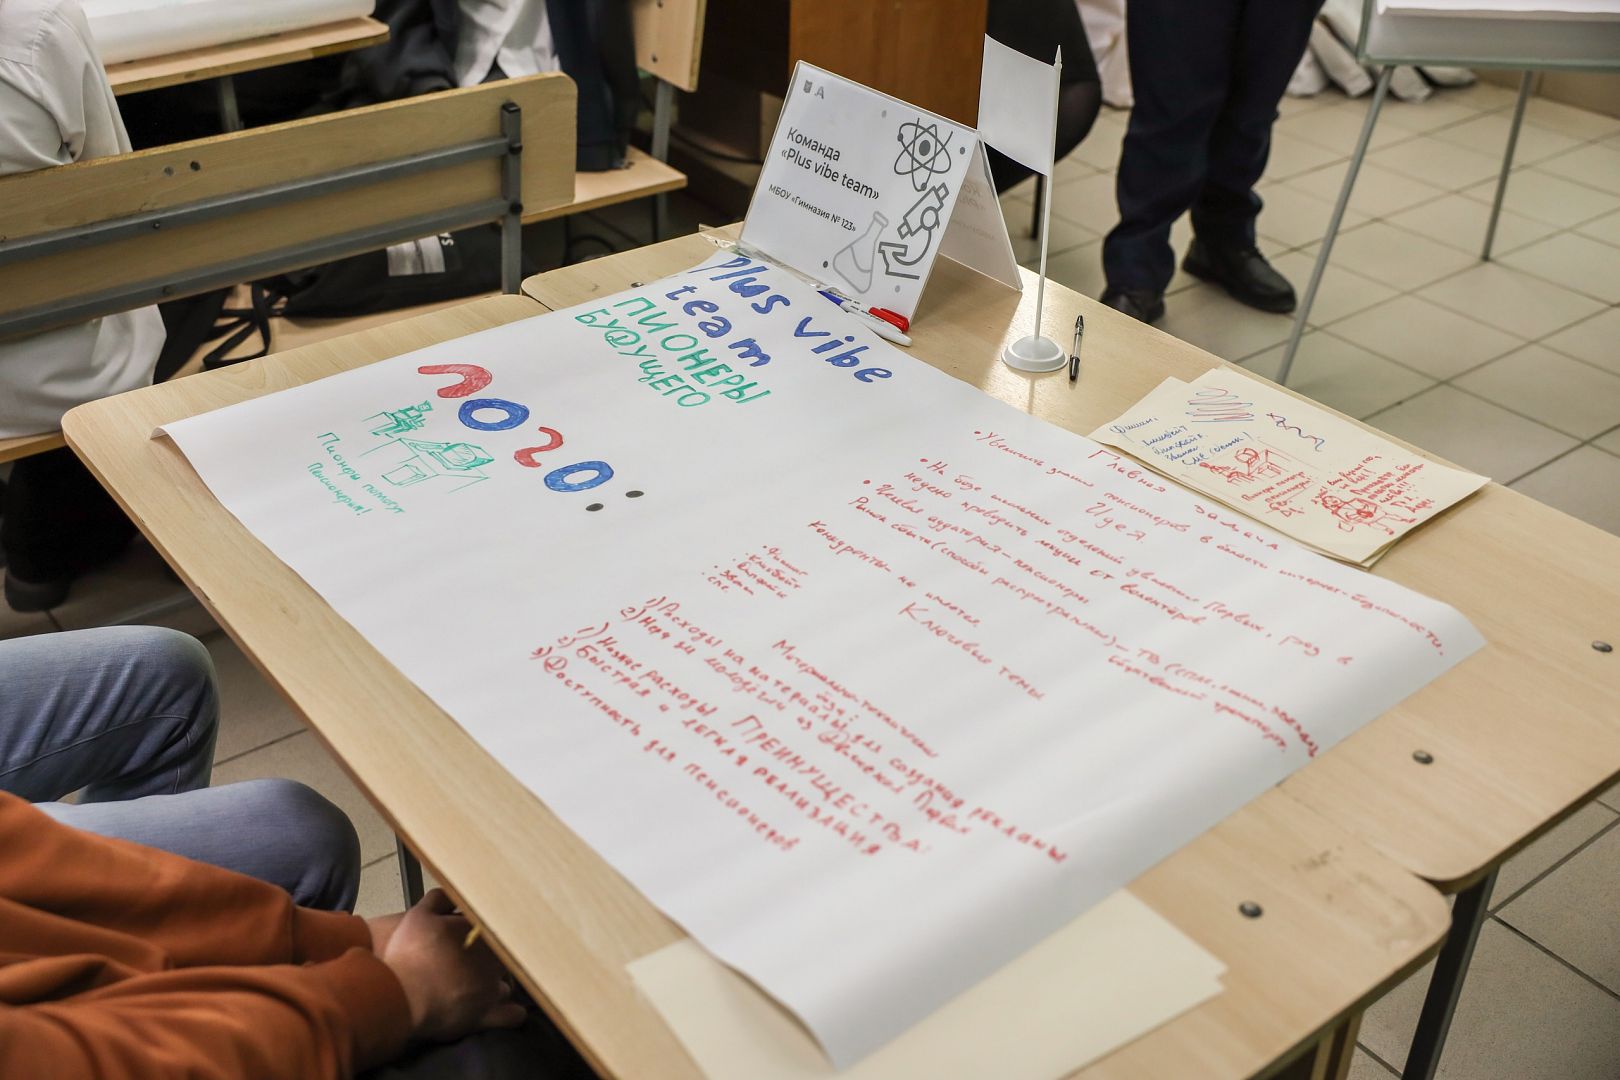 Команда
«Plus vibe team»
МБОУ «Гимназия № 123»
Plus vibe
team
ПИОНЕРЫ
БУДУЩЕГО
лого:
Пионеры помогут
Пенсионерам!
Главная задача
• Увеличить знания пенсионеров в области интернет-безопасности.
Идея
• На базе школьных отделений движения Первых, раз в
неделю проводить лекции от волонтёров
• Целевая аудитория - пенсионеры
Рынок сбыта (способы распространения) - ТВ (
общественный транспорт.
Конкуренты не имеется
Ключевые темы
• Фишинг
• Кликбейт
• Дипфейк
• Звонки
Материально-техническая
база:
1) Расходы на материалы для создания рекламы
2) Мерч для молодёжи из Движения Первых
ПРЕИМУЩЕСТВА:
1) Низкие расходы
2) Быстрая и легкая реализация
3) Доступность для пенсионеров
Фишинг,
Кликбейт
Дипфейк
Звонки
Пионеры помогут
пенсионерам!